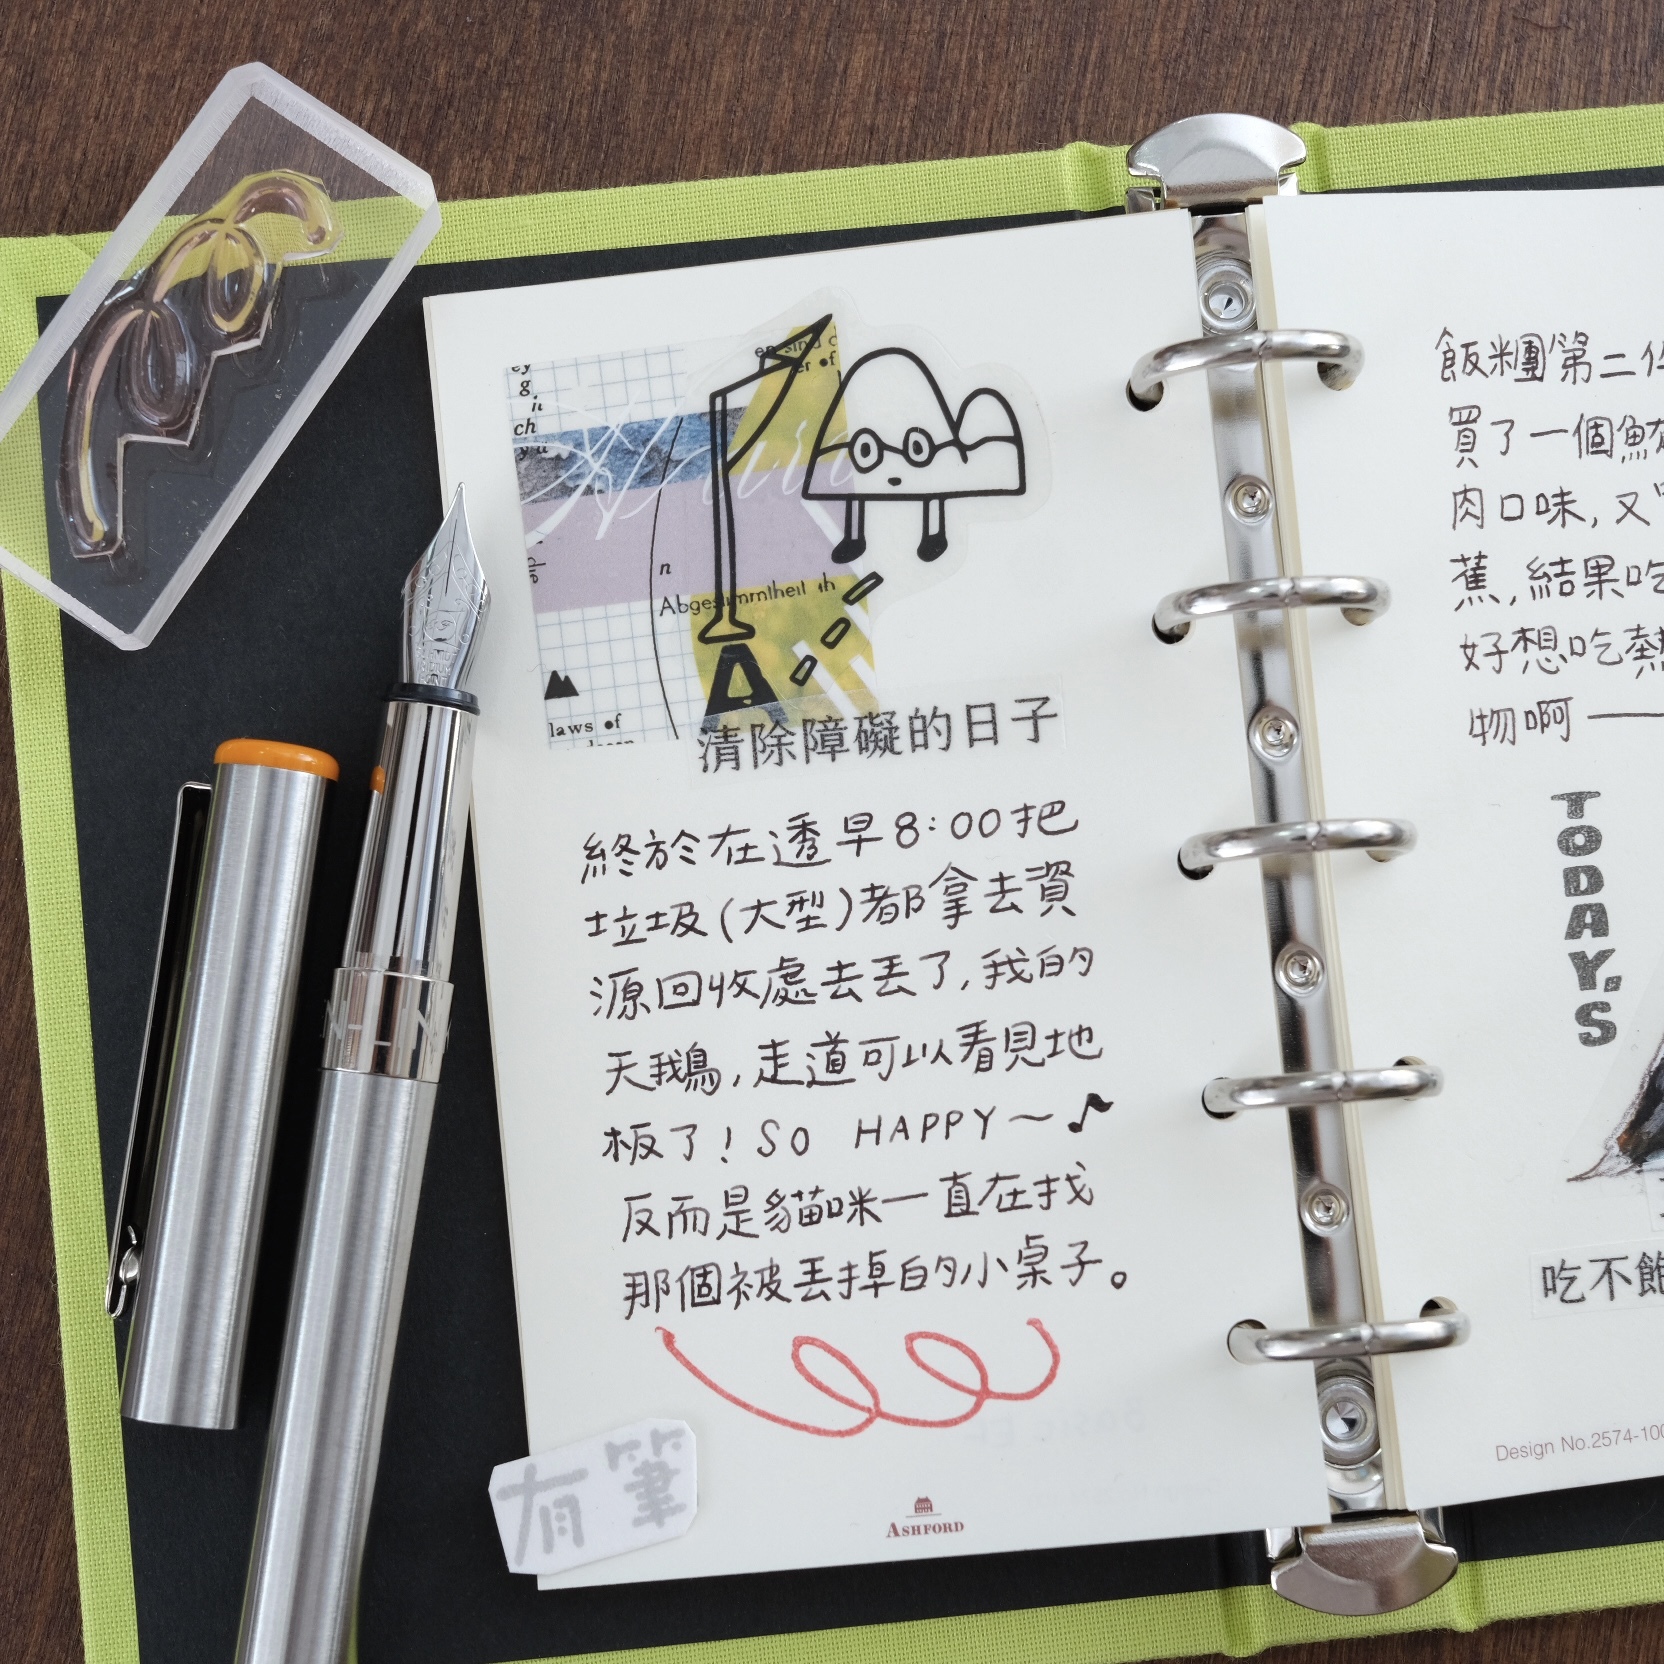 ey
g
ch
er of
n
die
Abgesammtheit th
laws of
清除障礙的日子
終於在透早8:00把
垃圾(大型)都拿去資
源回收處去丟了,我的
天鵝,走道可以看見地
板了!SO HAPPY~♪
反而是貓咪一直在找
那個被丟掉的小桌子。
有筆
ASHFORD
飯糰第二件
買了一個鮪
肉口味,又
蕉,結果吃
好想吃熱
物啊——
TODAY'S
吃不飽
Design No.2574-100